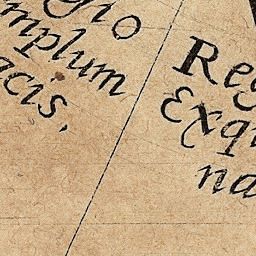 gio
mplum
acis.
Reg
Exqu
na